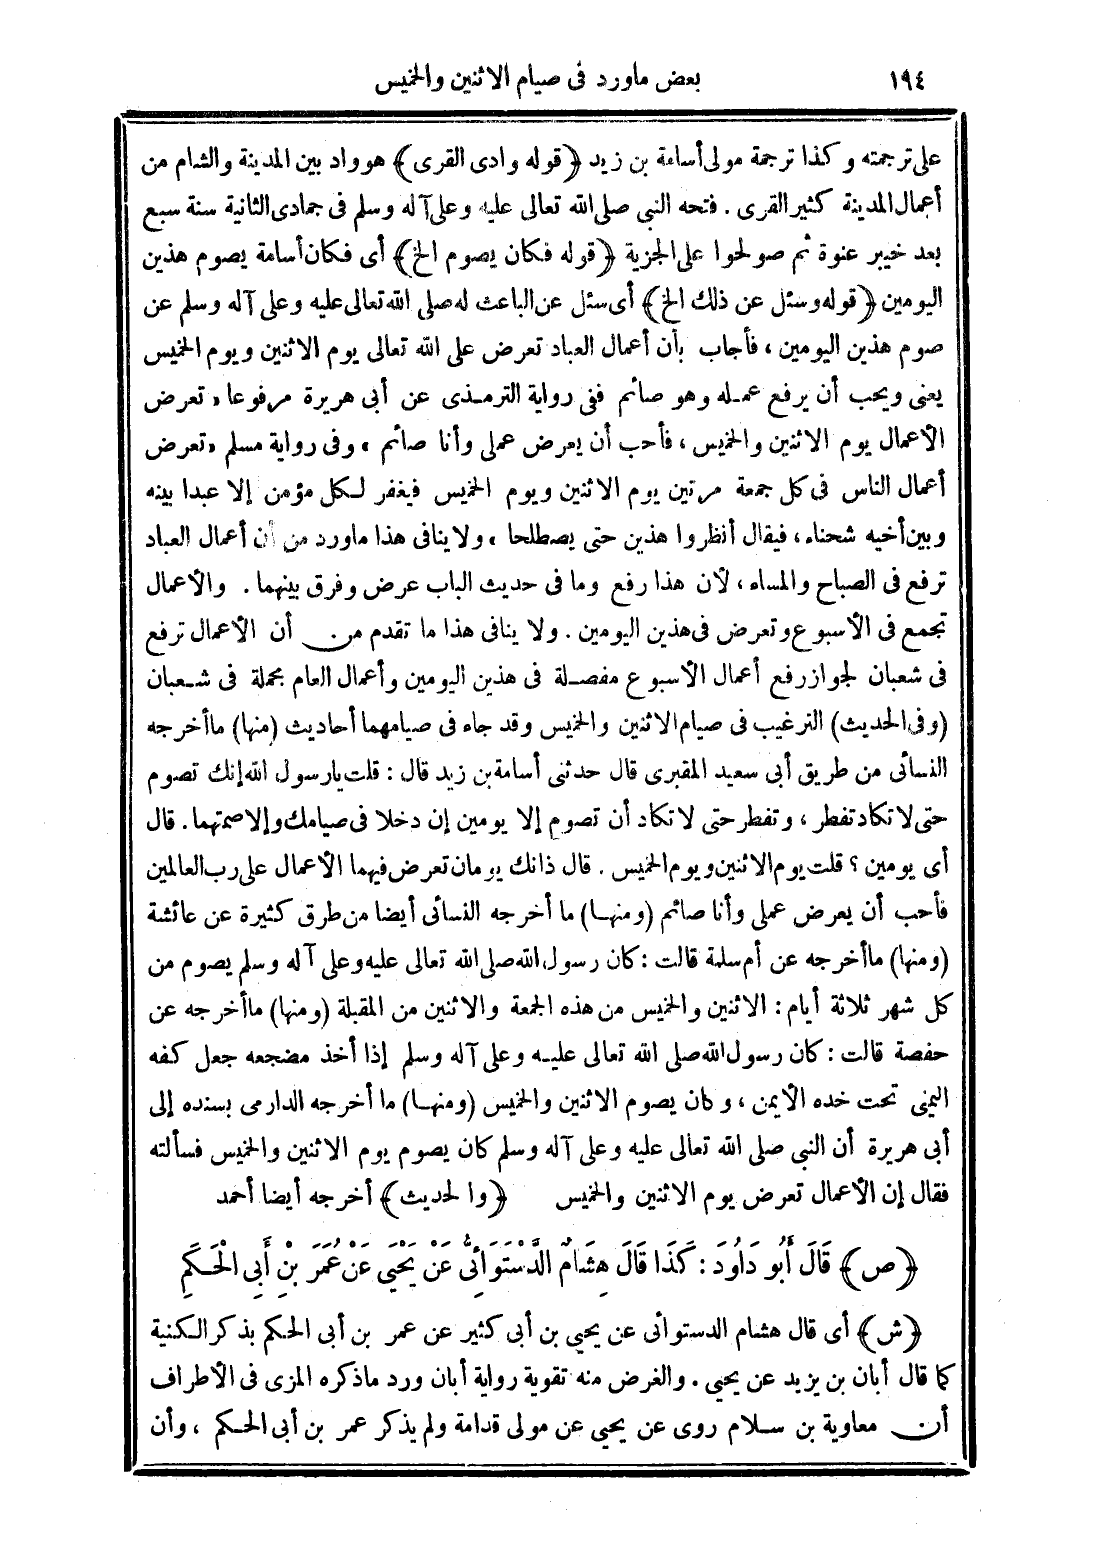 ١٩٤
بعض ماورد فى صيام الاثنين والخميس
على ترجمته وكذا ترجمة مولى أسامة بن زيد ﴿قوله وادى القرى﴾ هو واد بين المدينة والشام من
أعمال المدينة كثير القرى . فتحه النبي صلى الله تعالى عليه وعلى آله وسلم فى جمادى الثانية سنة سبع
بعد خيبر عنوة ثم صولحوا على الجزية ﴿قوله فكان يصوم الخ﴾ أى فكان أسامة يصوم هذين
اليومين ﴿قوله وسئل عن ذلك الخ﴾ أى سئل عن الباعث له صلى الله تعالى عليه وعلى آله وسلم عن
صوم هذين اليومين ، فأجاب بأن أعمال العباد تعرض على الله تعالى يوم الاثنين ويوم الخميس
يعنى ويحب أن يرفع عمله وهو صائم ففى رواية الترمذى عن أبى هريرة مرفوعا «تعرض
الأعمال يوم الاثنين والخميس ، فأحب أن يعرض عملى وأنا صائم» وفى رواية مسلم «تعرض
أعمال الناس فى كل جمعة مرتين يوم الاثنين ويوم الخميس فيغفر لكل مؤمن إلا عبدا بينه
وبين أخيه شحناء، فيقال أنظروا هذين حتى يصطلحا» ولا ينافى هذا ماورد من أن أعمال العباد
ترفع فى الصباح والمساء ، لأن هذا رفع وما فى حديث الباب عرض وفرق بينهما . والأعمال
تجمع فى الأسبوع وتعرض فى هذين اليومين . ولا ينافى هذا ما تقدم من أن الأعمال ترفع
فى شعبان لجواز رفع أعمال الأسبوع مفصلة فى هذين اليومين وأعمال العام مجملة فى شعبان
(وفى الحديث) الترغيب فى صيام الاثنين والخميس وقد جاء فى صيامهما أحاديث (منها) ما أخرجه
النسائى من طريق أبى سعيد المقبرى قال حدثنى أسامة بن زيد قال : قلت يارسول الله إنك تصوم
حتى لا تكاد تفطر ، وتفطر حتى لا تكاد أن تصوم إلا يومين إن دخلا فى صيامك وإلا صمتهما . قال
أى يومين ؟ قلت يوم الاثنين ويوم الخميس . قال ذانك يومان تعرض فيهما الأعمال على رب العالمين
فأحب أن يعرض عملى وأنا صائم (ومنها) ما أخرجه النسائى أيضا من طرق كثيرة عن عائشة
(ومنها) ما أخرجه عن أم سلمة قالت : كان رسول الله صلى الله تعالى عليه وعلى آله وسلم يصوم من
كل شهر ثلاثة أيام : الاثنين والخميس من هذه الجمعة والاثنين من المقبلة (ومنها) ما أخرجه عن
حفصة قالت : كان رسول الله صلى الله تعالى عليه وعلى آله وسلم إذا أخذ مضجعه جعل كفه
اليمنى تحت خده الأيمن ، وكان يصوم الاثنين والخميس (ومنها) ما أخرجه الدارمى بسنده إلى
أبى هريرة أن النبي صلى الله تعالى عليه وعلى آله وسلم كان يصوم يوم الاثنين والخميس فسألته
فقال إن الأعمال تعرض يوم الاثنين والخميس ﴿والحديث﴾ أخرجه أيضا أحمد
﴿ص﴾ قَالَ أَبُو دَاوُدَ : كَذَا قَالَ هِشَامٌ الدَّسْتَوَائِىُّ عَنْ يَحْيَى عَنْ عُمَرَ بْنِ أَبِى الْحَكَمِ
﴿ش﴾ أى قال هشام الدستوائى عن يحيى بن أبى كثير عن عمر بن أبى الحكم بذكر الكنية
كما قال أبان بن يزيد عن يحيى . والغرض منه تقوية رواية أبان ورد ماذكره المزى فى الأطراف
أن معاوية بن سلام روى عن يحيى عن مولى قدامة ولم يذكر عمر بن أبى الحكم ، وأن